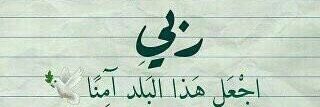 ربي
اجْعَل هَذا البَلد آمِنًا